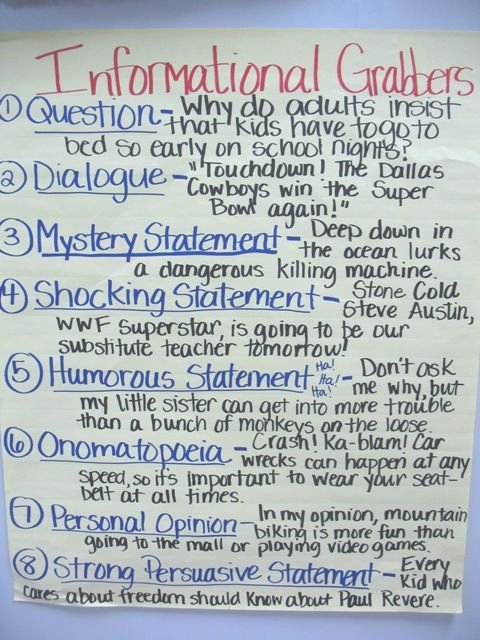 Informational Grabbers
① Question - Why do adults insist
that kids have to go to
bed so early on school nights?
② Dialogue - "Touchdown! The Dallas
Cowboys win the Super
Bowl again!"
③ Mystery Statement - Deep down in
the ocean lurks
a dangerous killing machine.
④ Shocking Statement - Stone Cold
Steve Austin,
WWF Superstar, is going to be our
substitute teacher tomorrow!
⑤ Humorous Statement Ha! Ha! Ha! - Don't ask
me why, but
my little sister can get into more trouble
than a bunch of monkeys on the loose.
⑥ Onomatopoeia - Crash! Ka-blam! Car
wrecks can happen at any
speed, so it's important to wear your seat-
belt at all times.
⑦ Personal Opinion - In my opinion, mountain
biking is more fun than
going to the mall or playing video games.
⑧ Strong Persuasive Statement - Every
kid who
cares about freedom should know about Paul Revere.